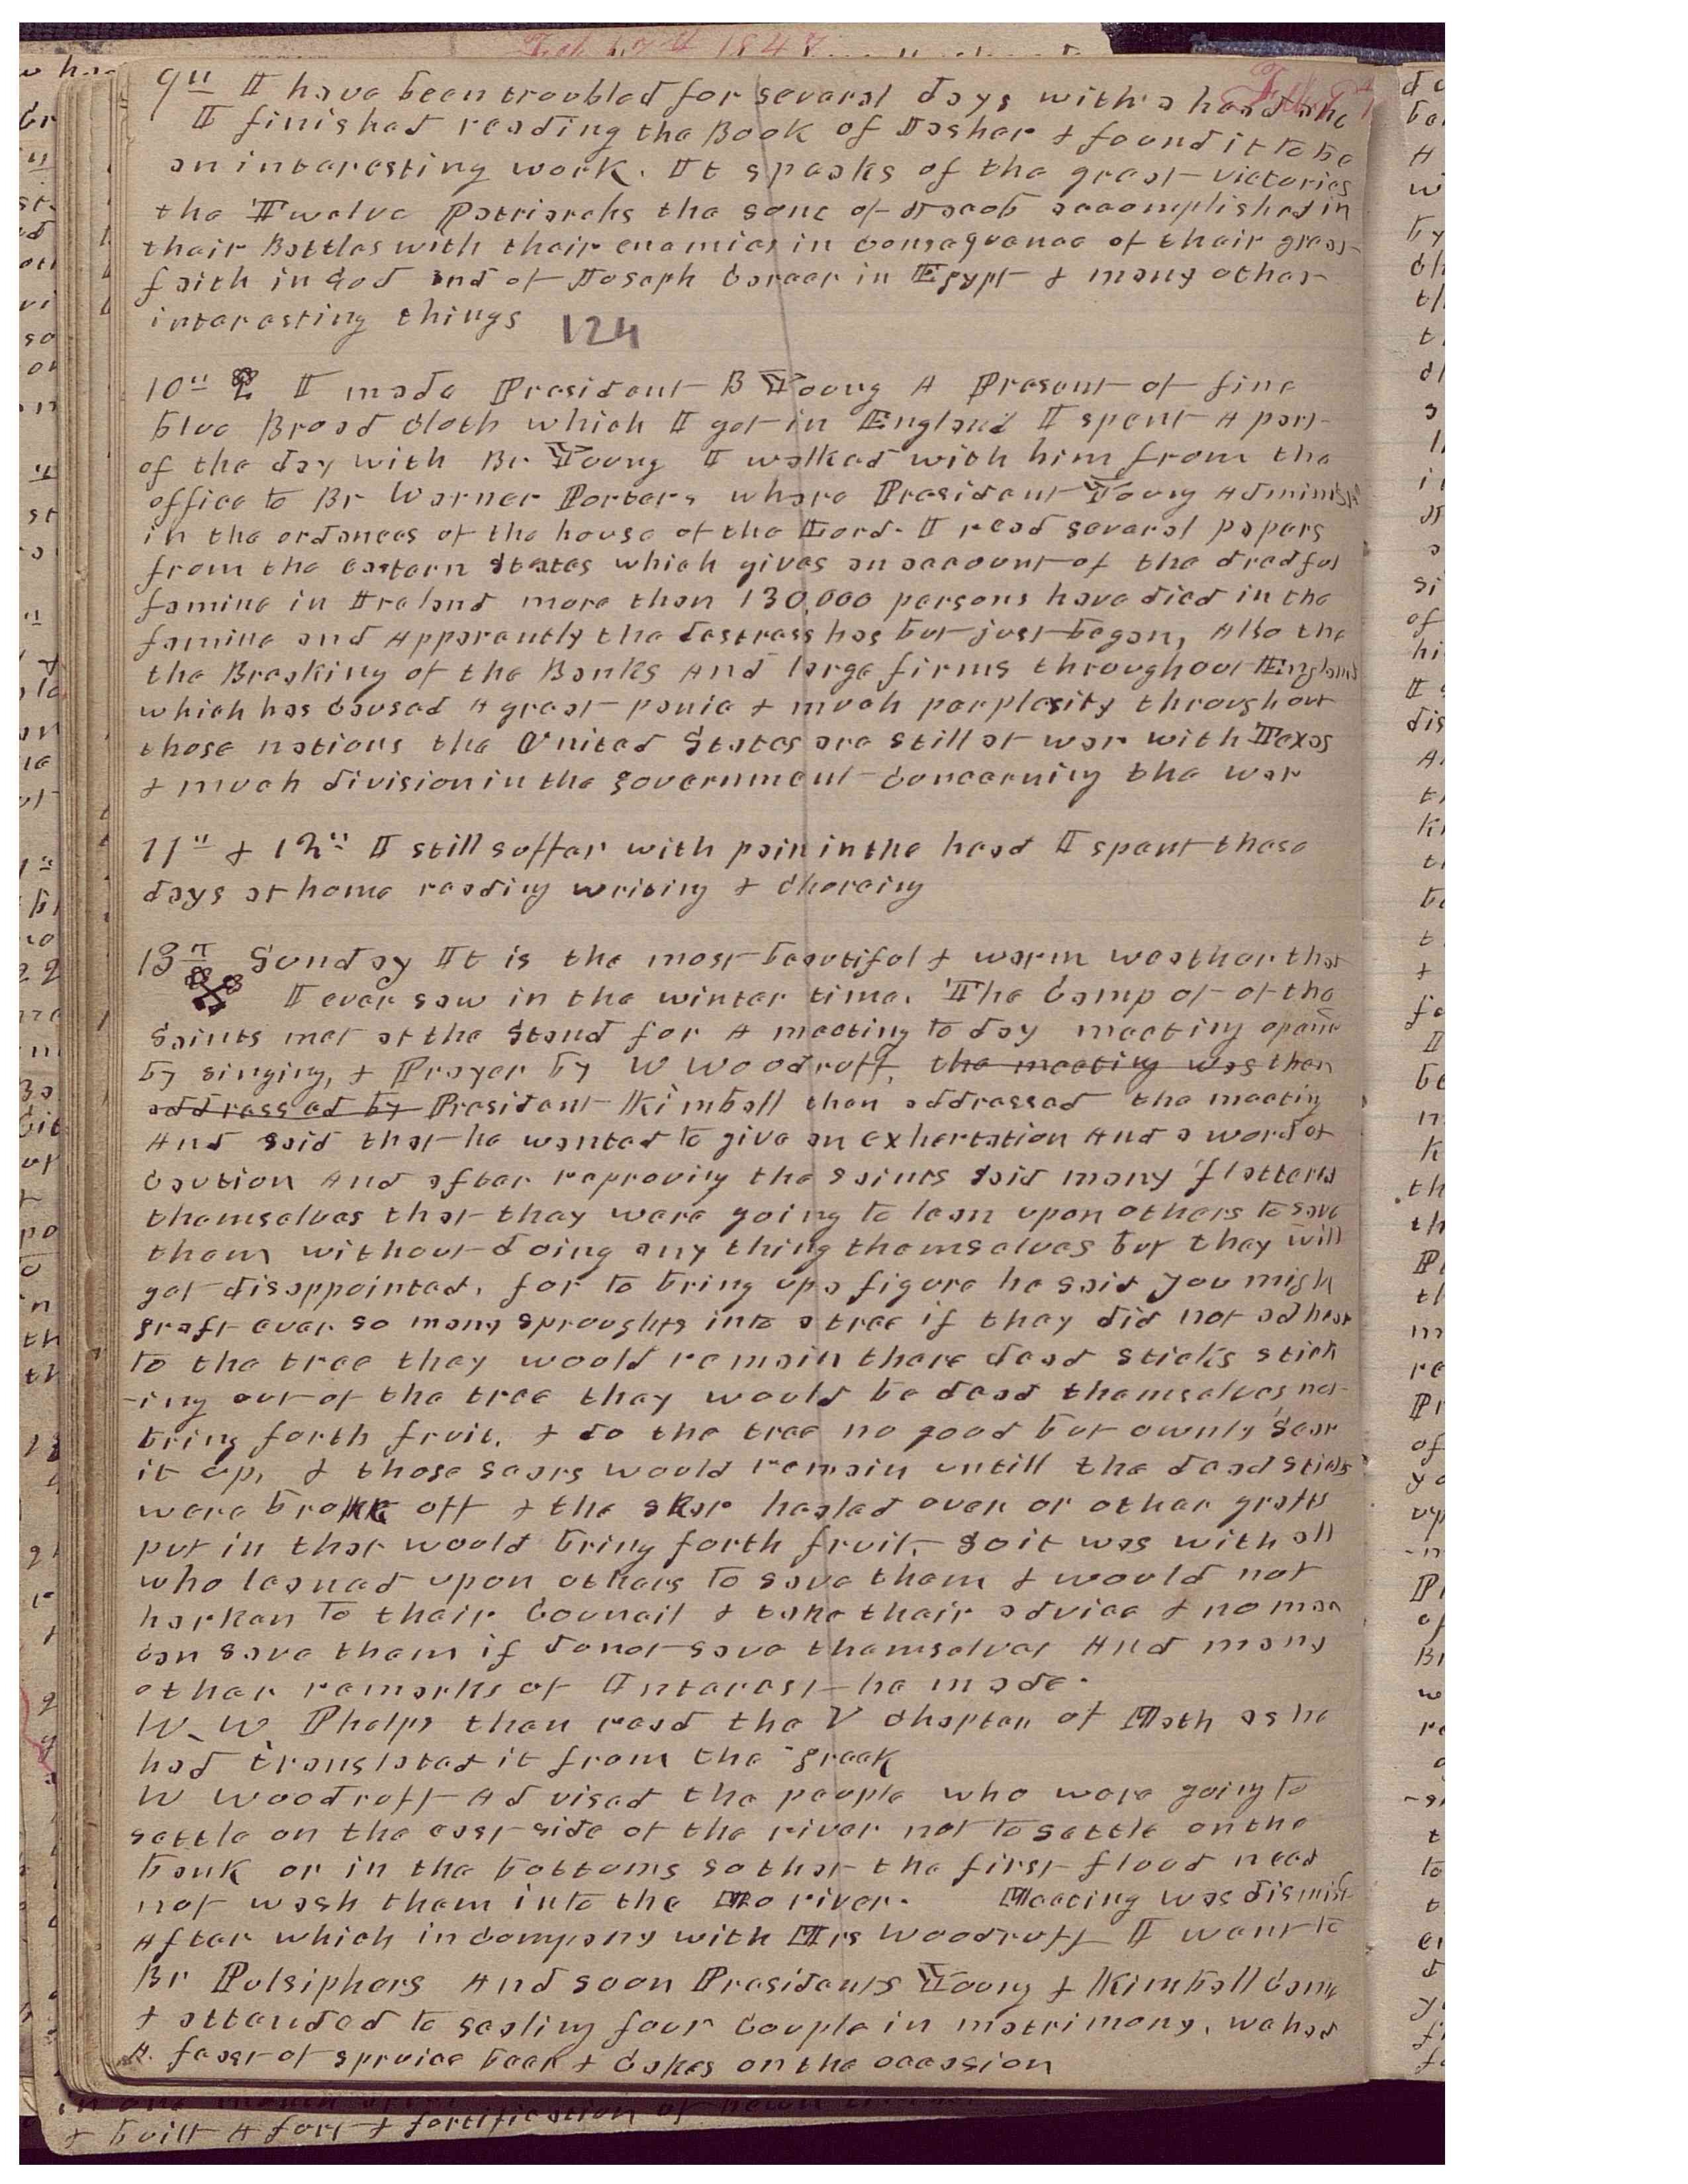 9th I have been troubled for several days with a head ake
I finished reading the Book of Jasher & found it to be
an interesting work. It speaks of the great victories
the Twelve Patriarchs the sons of Jacob accomplished in
their Battles with their enemies in Consequence of their great
faith in God and of Joseph Career in Egypt & many other
interesting things 124
10th I made President B Young A Present of fine
blue Broad Cloth which I got in England I spent A part
of the day with Br Young I walked with him from the
office to Br Warner Porters whare President Young Administ
in the ordances of the house of the Lord. I read several papers
from the eastern States which gives an account of the dredful
famine in Ireland more than 130,000 persons have died in the
famine and Apparently the destress has but just began, Also the
the Breaking of the Banks And large firms throughout England
which has Caused A great panic & much perplexity throughout
those nations the United States are still at war with Texas
& much division in the government Concerning the war
11th & 12th I still suffer with pain in the head I spent these
days at home reading writing & choreing
13th Sunday It is the most beautiful & warm weather that
I ever saw in the winter time. The Camp of of the
Saints met at the Stand for A meeting to day meeting opene
by singing, & Prayer by W Woodruff, the meeting was then
addressed by President Kimball then addressed the meeting
And said that he wanted to give an exhertation And a word of
Caution And after reproving the saints said many flatterd
themselves that they were going to lean upon others to save
them without doing any thing themselves but they will
get disappointed, for to bring up a figure he said you migh
graft ever so many sproughts into a tree if they did not adhear
to the tree they would remain there dead sticks stick
-ing out of the tree they would be dead themselves not
bring forth fruit, & do the tree no good but ownly Scar
it up, & those scars would remain untill the dead sticks
were broke off & the skar healed over or other grafts
put in that would bring forth fruit, So it was with all
who leaned upon others to save them & would not
harken to their Council & take their advice & no man
can save them if donot save themselves And many
other remarks of Interest he made.
W. W Phelps then read the V Chapter of Math as he
had translated it from the greek
W Woodruff Advised the people who were going to
settle on the east side of the river not to settle on the
bank or in the bottoms so that the first flood need
not wash them into the Mo river. Meeting was dismist
After which in Company with Mrs Woodruff I went to
Br Pulsiphers And soon Presidents Young & Kimball Came
& attended to sealing four Couple in matrimony, we had
A feast of spruice beer & Cakes on the occasion
& built A fort & fortification of